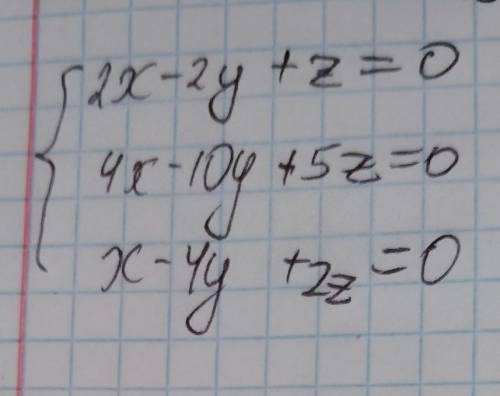 2x-2y+z=0
4x-10y+5z=0
x-4y+2z=0